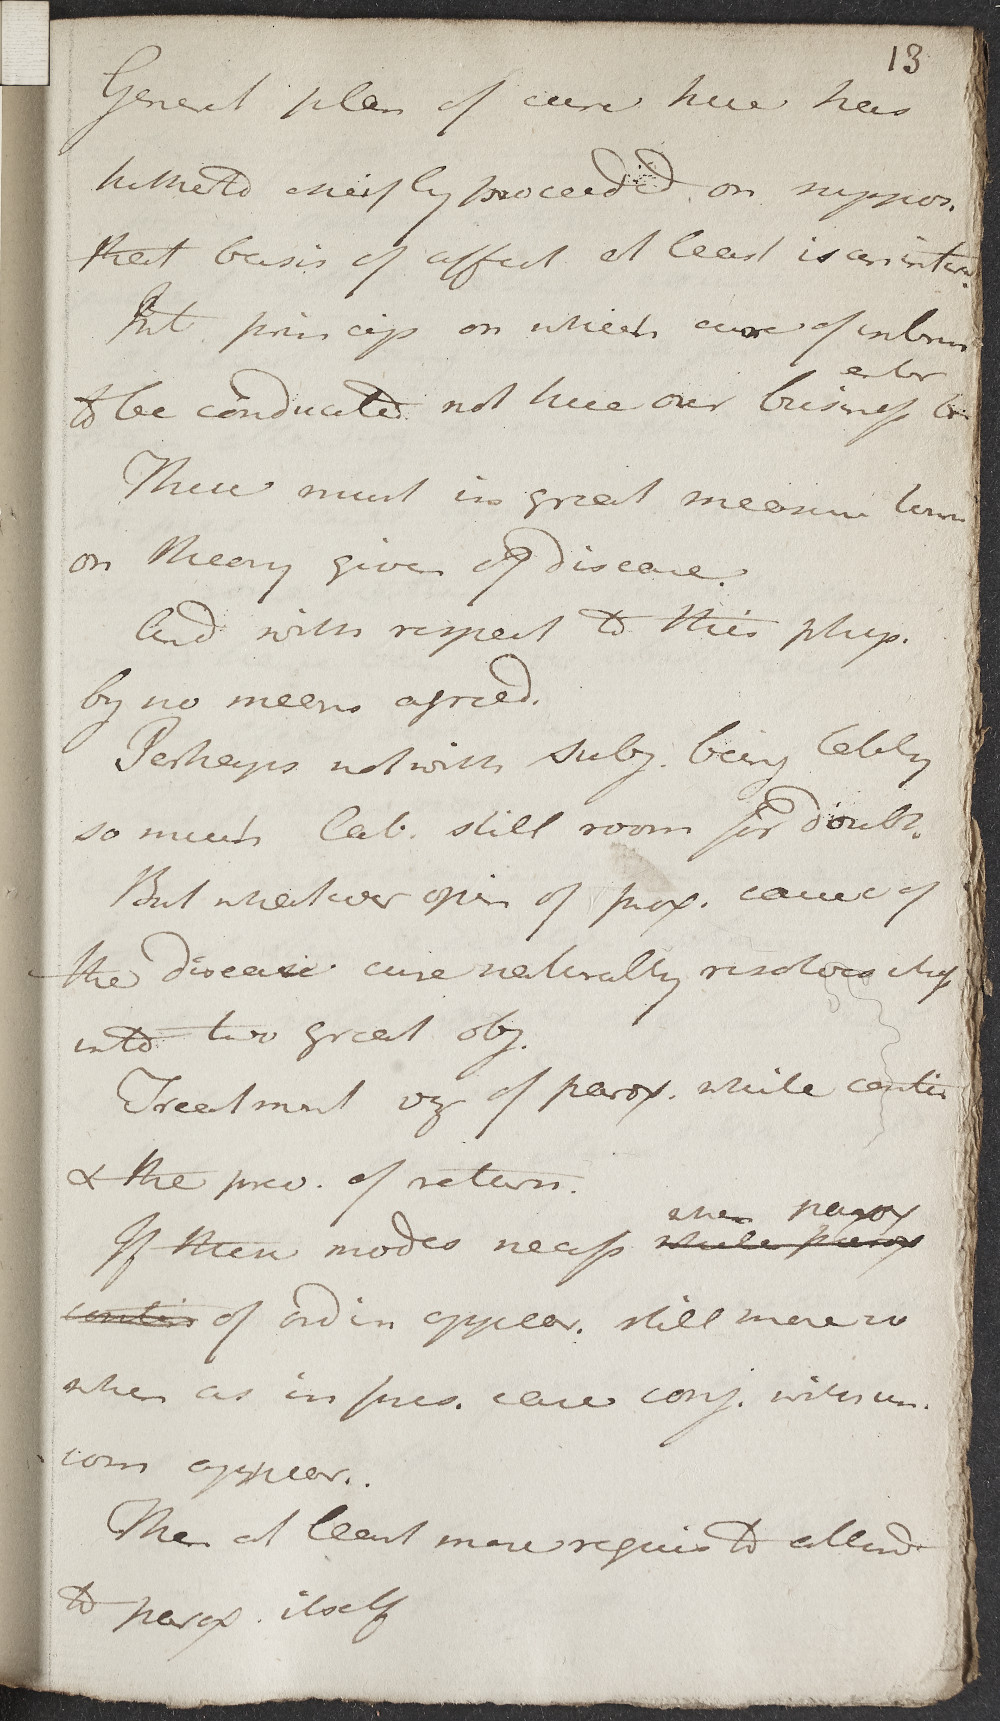 13
General plan of cure here has
hitherto chiefly proceeded on suppos.
that basis of affect at least is an inter.
But princip on which cure of interm
enter
to be conducted not here our business to
These must in great measure turn
on theory given of disease.
And with respect to this phys.
by no means agreed.
Perhaps notwith subj. being lately
so much lab. still room for doubt.
But whatever opin of prox. cause of
the disease cure naturally resolves itself
into two great obj.
Treatment viz of parox. while contin
& the prev. of return.
when parox
If these modes necess while parox
contin of ordin appear. still more so
when as in pres. case conj. with un.
com appear.
Then at least more requis to attend
to parox. itself